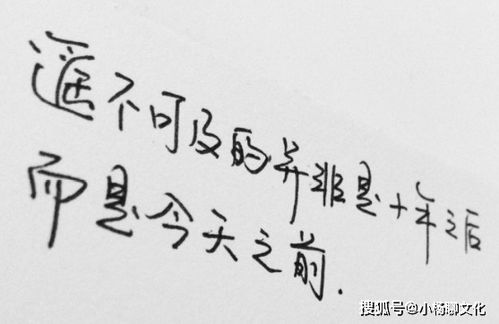 遥不可及的并非是十年之后
而是今天之前.
搜狐号@小杨聊文化